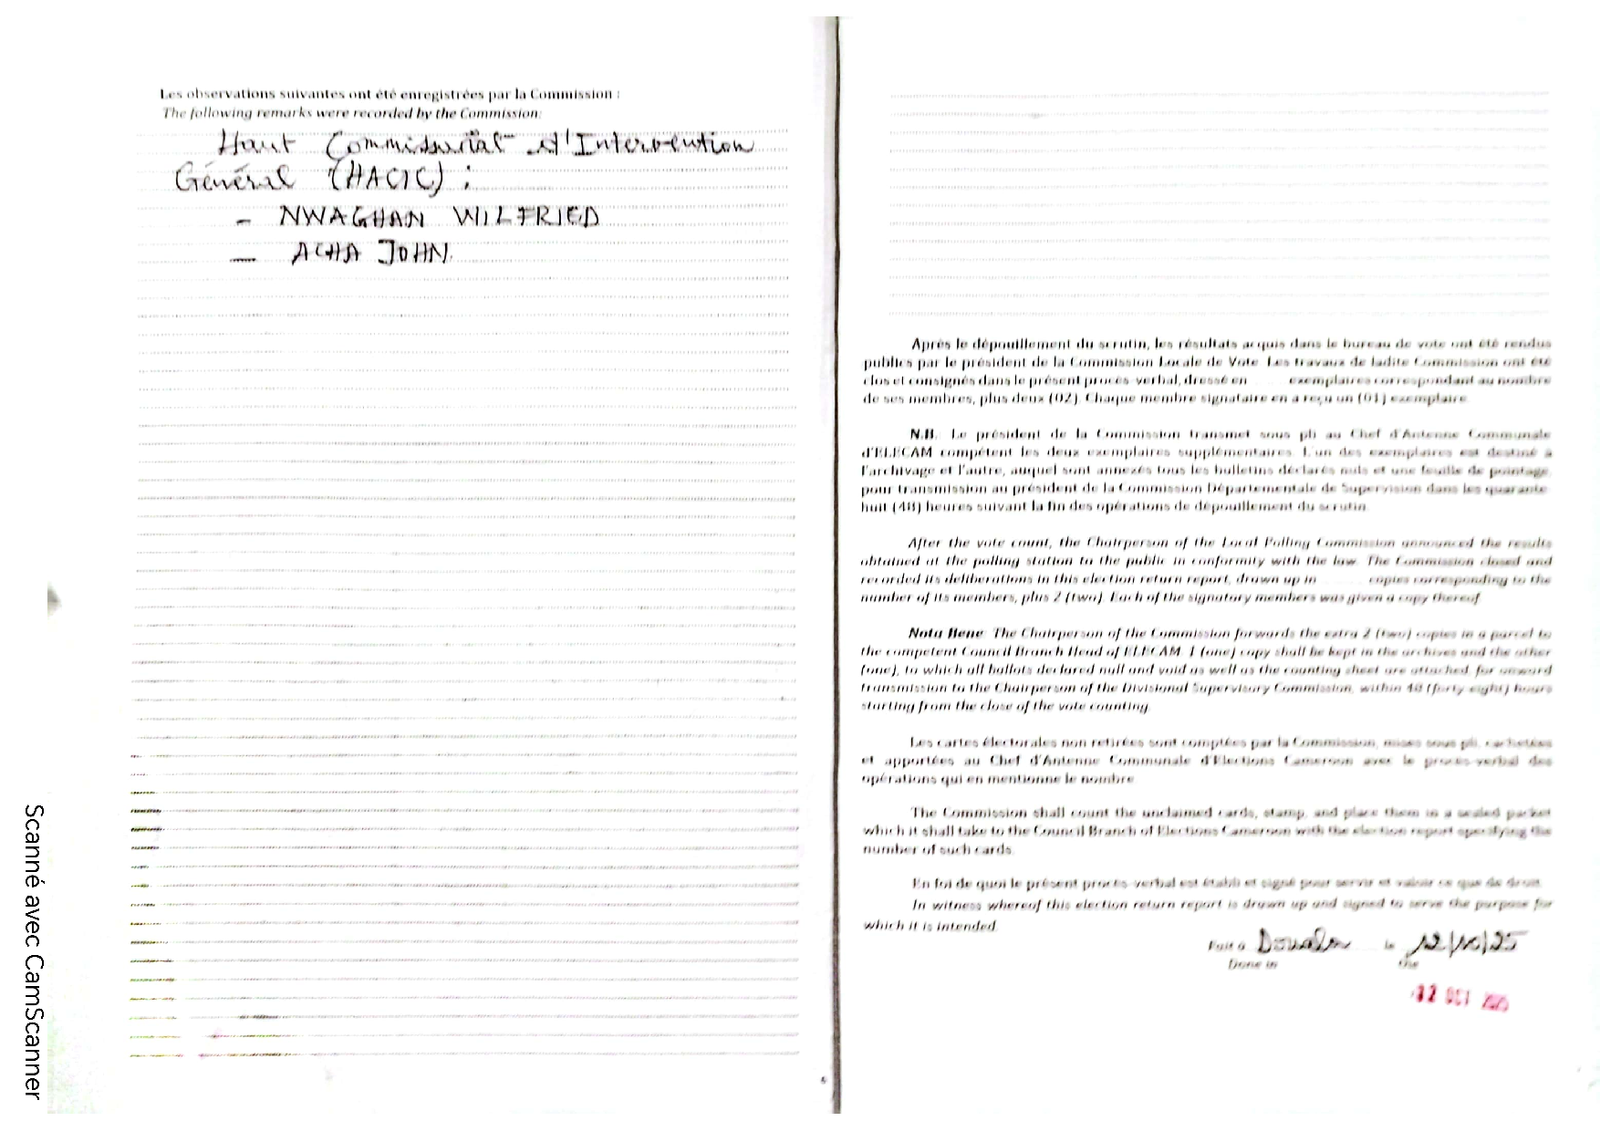 Les observations suivantes ont été enregistrées par la Commission :
The following remarks were recorded by the Commission:
Haut Commissariat d'Intervention
Général (HACIC) :
- NWAGHAN WILFRIED
- ACHA JOHN
6
Après le dépouillement du scrutin, les résultats acquis dans le bureau de vote ont été rendus
publics par le président de la Commission Locale de Vote. Les travaux de ladite Commission ont été
clos et consignés dans le présent procès-verbal, dressé en exemplaires correspondant au nombre
de ses membres, plus deux (02). Chaque membre signataire en a reçu un (01) exemplaire.
N.B. Le président de la Commission transmet sous pli au Chef d'Antenne Communale
d'ELECAM compétent les deux exemplaires supplémentaires. L'un des exemplaires est destiné à
l'archivage et l'autre, auquel sont annexés tous les bulletins déclarés nuls et une feuille de pointage,
pour transmission au président de la Commission Départementale de Supervision dans les quarante-
huit (48) heures suivant la fin des opérations de dépouillement du scrutin.
After the vote count, the Chairperson of the Local Polling Commission announced the results
obtained at the polling station to the public in conformity with the law. The Commission closed and
recorded its deliberations in this election return report, drawn up in copies corresponding to the
number of its members, plus 2 (two). Each of the signatory members was given a copy thereof.
Nota Bene: The Chairperson of the Commission forwards the extra 2 (two) copies in a parcel to
the competent Council Branch Head of ELECAM. 1 (one) copy shall be kept in the archives and the other
(one), to which all ballots declared null and void as well as the counting sheet are attached, for onward
transmission to the Chairperson of the Divisional Supervisory Commission, within 48 (forty-eight) hours
starting from the close of the vote counting.
Les cartes électorales non retirées sont comptées par la Commission, mises sous pli, cachetées
et apportées au Chef d'Antenne Communale d'Elections Cameroon avec le procès-verbal des
opérations qui en mentionne le nombre.
The Commission shall count the unclaimed cards, stamp, and place them in a sealed packet
which it shall take to the Council Branch of Elections Cameroon with the election report specifying the
number of such cards.
En foi de quoi le présent procès-verbal est établi et signé pour servir et valoir ce que de droit.
In witness whereof this election return report is drawn up and signed to serve the purpose for
which it is intended.
Fait à Douala le 12/10/25
Done in the
12 OCT 2025
Scanné avec CamScanner